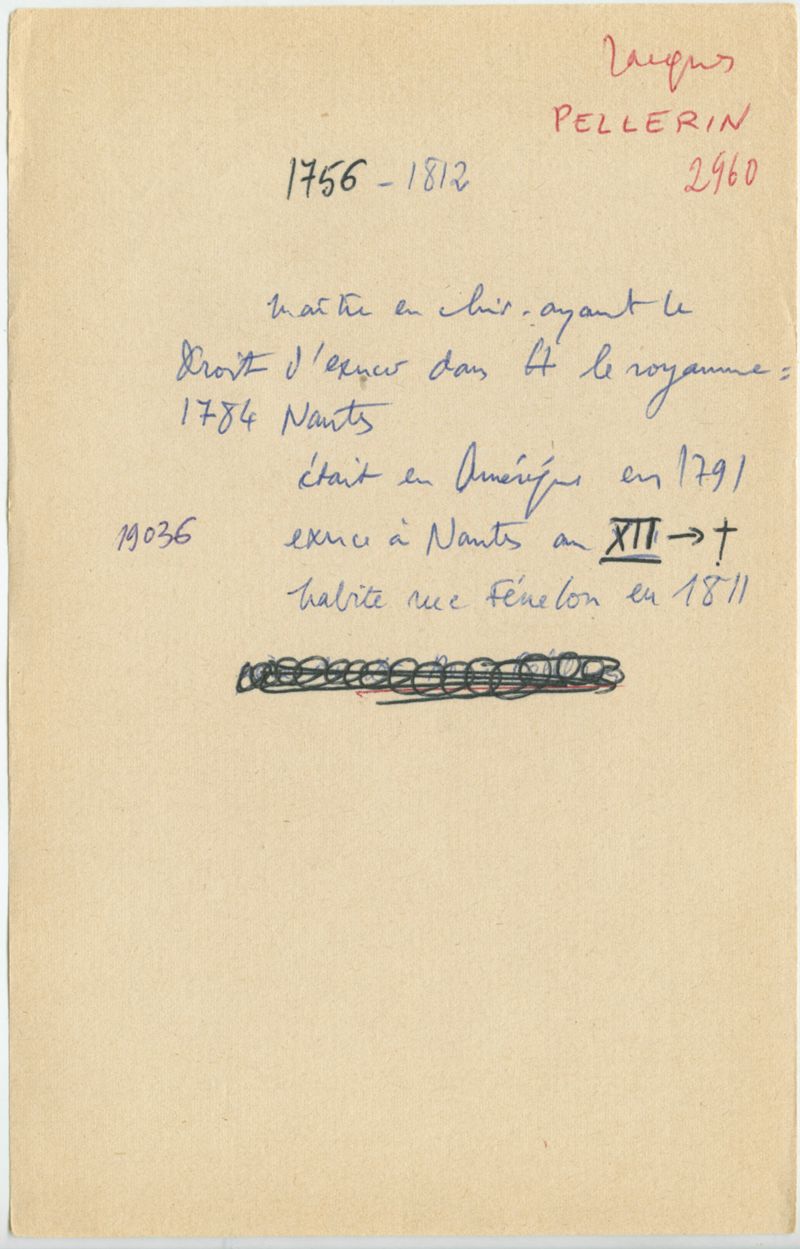 Jacques
PELLERIN
2960
1756 - 1812
maître en chir. ayant le
Droit d'exercer dans tt le royaume =
1784 Nantes
était en Amérique en 1791
19036 exerce à Nantes an XIII → †
habite rue Fénelon en 1811